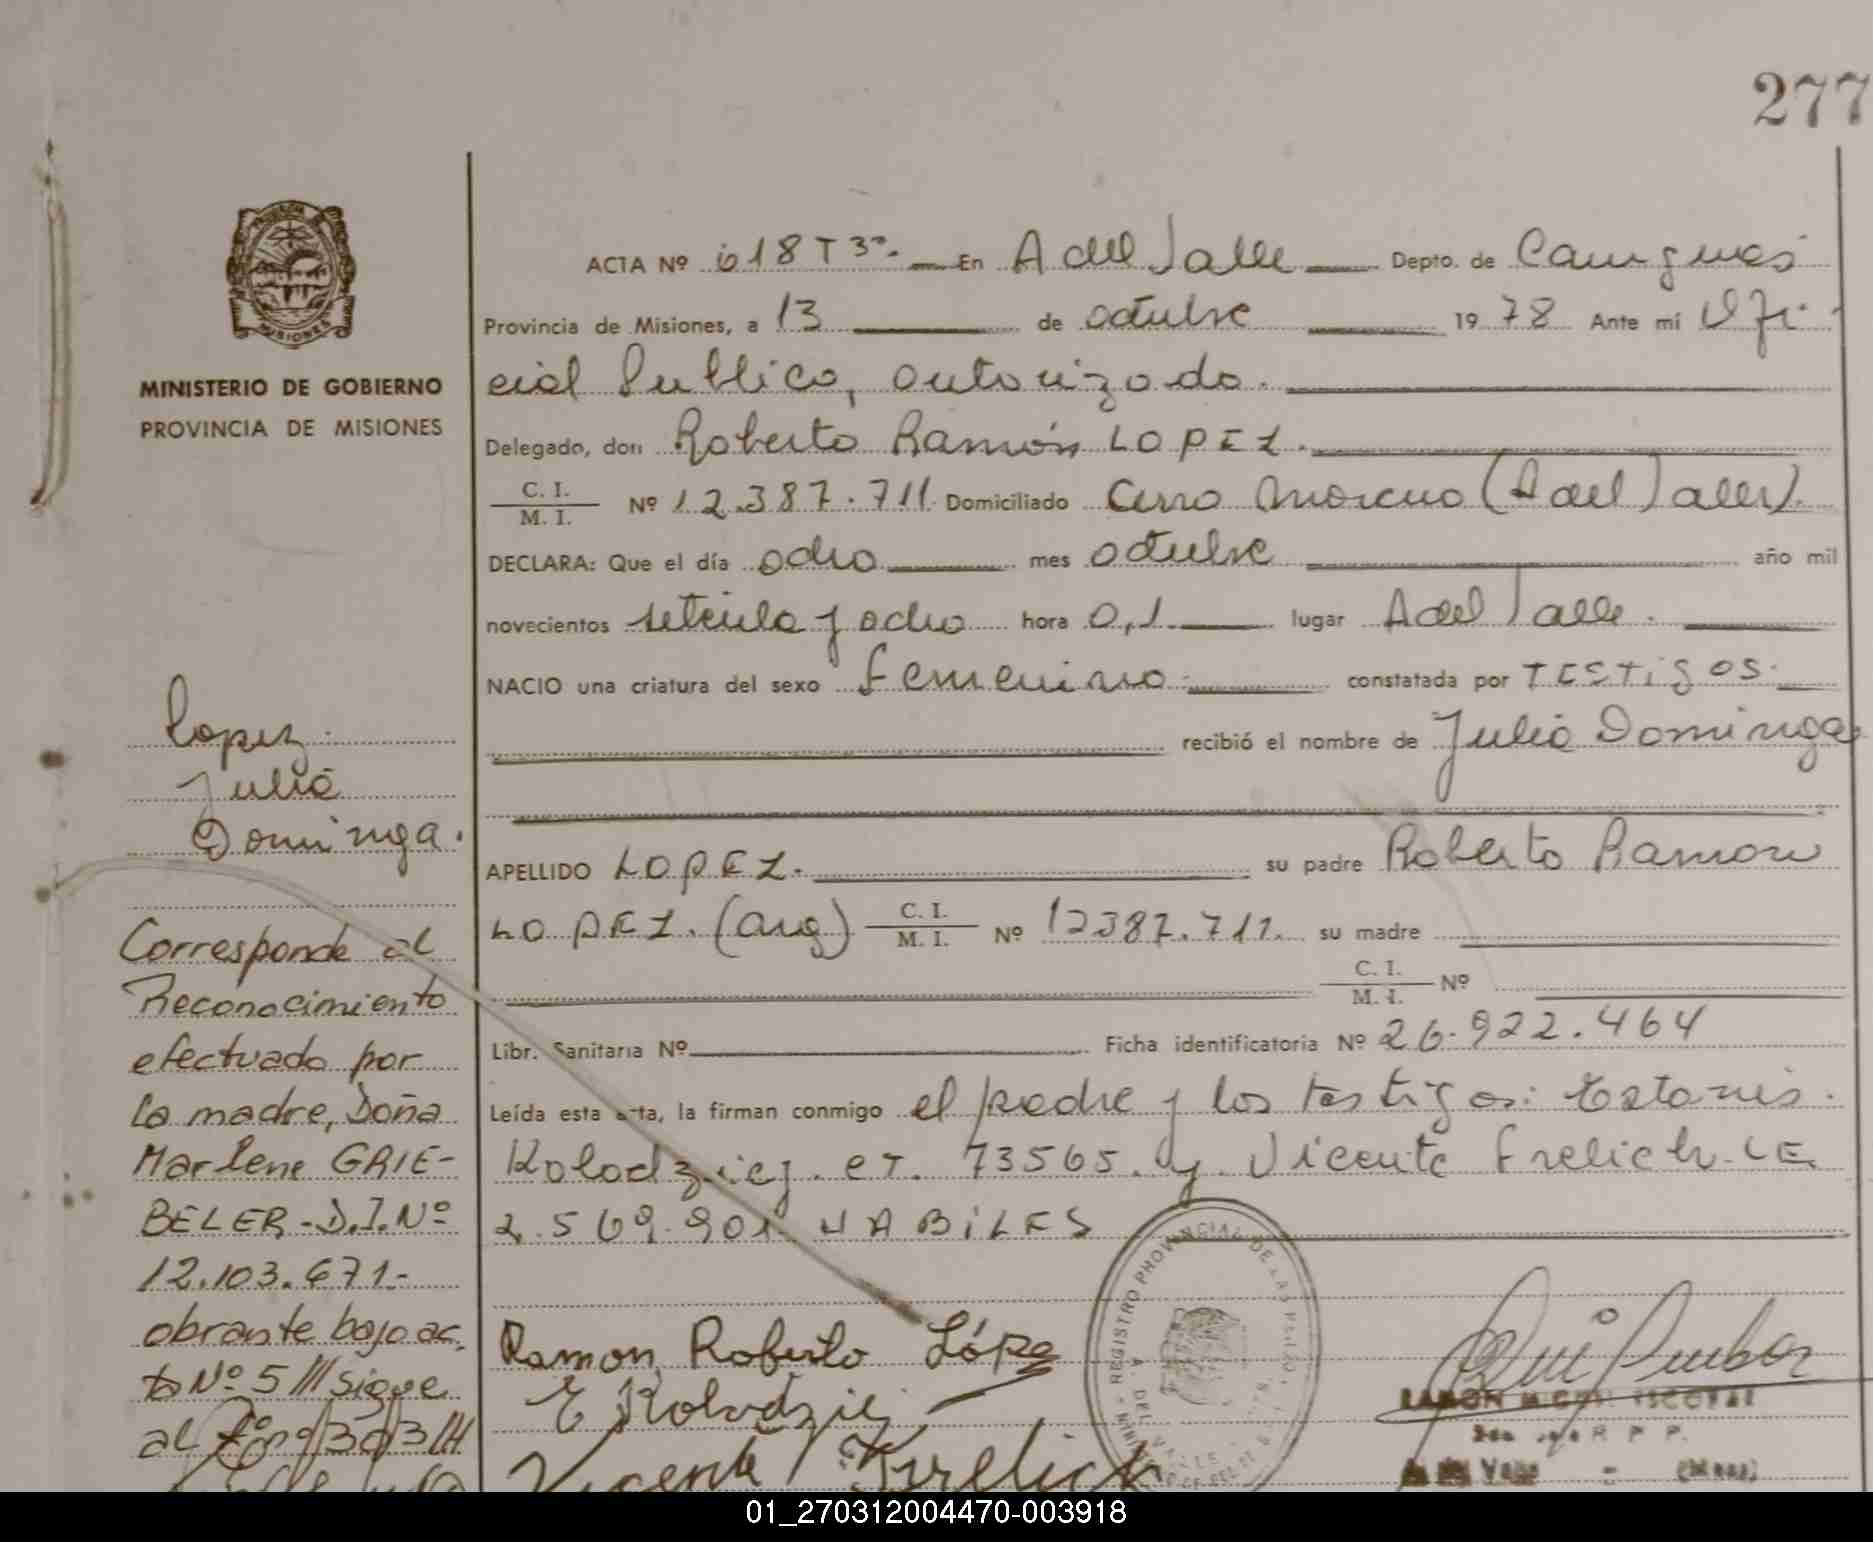 277
MISIONES
MINISTERIO DE GOBIERNO
PROVINCIA DE MISIONES
Lopez.
Julia
Dominga.
Corresponde al
Reconocimiento
efectuado por
la madre, Doña
Marlene GRIE-
BELER - D.I. Nº
12.103.671-
obrante bajo ac.
ta Nº 5 /// sigue
al
ACTA Nº 618 T 3º. En A del Valle Depto. de Cainguas
Provincia de Misiones, a 13 de octubre 19 78 Ante mí Ofi-
cial Publico, autorizado.
Delegado, don Roberto Ramón LOPEZ.
C. I.
M. I. Nº 12.387.711. Domiciliado Cerro Moreno (A del Valle).
DECLARA: Que el día ocho mes octubre año mil
novecientos setenta y ocho hora 0,1 lugar A del Valle.
NACIO una criatura del sexo femenino constatada por TESTigos.
recibió el nombre de Julia Dominga
APELLIDO LOPEZ. su padre Roberto Ramon
LOPEZ. (arg) C. I.
M. I. Nº 12387.711. su madre
C. I.
M. I. Nº
Libr. Sanitaria Nº Ficha identificatoria Nº 26.922.464
Leída esta acta, la firman conmigo el padre y los testigos: Estanis.
Kolodziej. CI. 73565. y Vicente Frelich. LE
2.569.901. HABILES
Ramon Roberto López
E Kolodziej
Vicente Frelich
REGISTRO PROVINCIAL DE LAS PERSONAS
A. DEL VALLE
RAMON MIGUEL ESCOBAR
R P P.
A. del Valle - (Mnes)
01_270312004470-003918